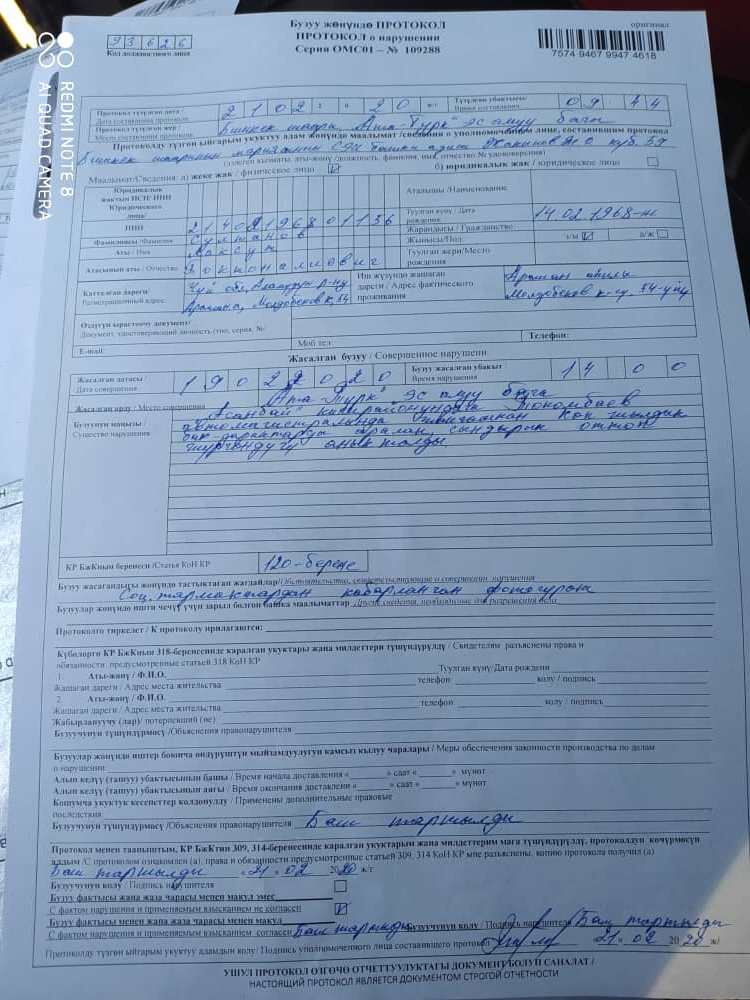 Бузуу жөнүндө ПРОТОКОЛ
оригинал
93626
ПРОТОКОЛ о нарушении
Код должностного лица
Серия ОМС01 – № 109288
7574 9467 9947 4618
Протокол түзүлгөн дата / Дата составления протокола 21 02 2020 ж/г Түзүлгөн убактысы/ Время составления 09 44
Протокол түзүлгөн жер / Место составления протокола Бишкек шаары, "Ата-Түрк" эс алуу багы
Протоколду түзгөн ыйгарым укуктуу адам жөнүндө маалымат /сведения о уполномоченном лице, составившим протокол
Бишкек шаарынын мэриясынын
(ээлеген кызматы, аты-жөнү /должность, фамилия, имя, отчество №удостоверения)
Маалымат/Сведения: а) жеке жак / физическое лицо б) юридикалык жак / юридическое лицо
Юридикалык жактын ИСН/ ИНН Юридического лица/
Аталышы /Наименование
ПИН 21402196801136
Туулган күнү / Дата рождения 14.02.1968-ж
Фамилиясы /Фамилия Султанов
Жарандыгы / Гражданство:
Аты - Имя Максут
Жынысы/Пол э/м а/ж
Атасынын аты / Отчество
Туулган жери/Место рождения
Катталган дареги/ Регистрационный адрес: Чүй обл, Аламүдүн р-ну
Арашан а, Молдобеков к, 34
Иш жүзүндө жашаган дареги / Адрес фактического проживания Арашан айылы
Молдобеков к-су, 34-үйү
Өздүгүн ырастоочу документ/
Документ, удостоверяющий личность (тип, серия, №/
E-mail:
Моб тел
Телефон:
Жасалган бузуу / Совершенное нарушени
Жасалган датасы / Дата совершения 19022020 Бузуу жасалган убакыт / Время нарушения 14 00
Жасалган орду / Место совершения "Ата-Түрк" эс алуу багы
Бузуунун маңызы / Существо нарушения "Асанбай" кичирайонунда Токомбаев
автомагистралында жайгашкан көп жылдык
бак-дарактарды аралап, сындырып өтөп
жүргөндүгү аныкталды
КР БжКнын беренеси /Статья КоН КР 120-берене
Бузуу жасагандыгы жөнүндө тастыктаган жагдайлар/ Обстоятельства, свидетельствующие о совершении нарушения
Соц. тармактардан кабарланган фотосүрөт
Бузуулар жөнүндө ишти чечүү үчүн зарыл болгон башка маалыматтар /Другие сведения, необходимые для разрешения дела
Протоколго тиркелет / К протоколу прилагаются:
Күбөлөргө КР БжКнын 318-беренесинде каралган укуктары жана милдеттери түшүндүрүлдү / Свидетелям разъяснены права и
обязанности, предусмотренные статьей 318 КоН КР
1. Аты-жөнү / Ф.И.О. Туулган күнү/Дата рождени
Жашаган дареги / Адрес места жительства телефон колу / подпись
2. Аты-жөнү / Ф.И.О.
Жашаган дареги / Адрес места жительства телефон колу / подпись
Жабырлануучу (лар)/ потерпевший (не)
Бузуучунун түшүндүрмөсү /Объяснения правонарушителя
Бузуулар жөнүндө иштер боюнча өндүрүштүн мыйзамдуулугун камсыз кылуу чаралары / Меры обеспечения законности производства по делам
о нарушении
Алып келүү (ташуу) убактысынын башы / Время начала доставления « » саат « » мүнөт
Алып келүү (ташуу) убактысынын аягы / Время окончания доставлени « » саат « » мүнөт
Кошумча укуктук кесепеттер колдонулду / Применены дополнительные правовые
последствия
Бузуучунун түшүндүрмөсү /Объяснения правонарушителя Баш тартылды
Протокол менен тааныштым, КР БжКтин 309, 314-беренесинде каралган укуктарым жана милдеттерим мага түшүндүрүлдү, протоколдун көчүрмөсүн
алдым /С протоколом ознакомлен (а), права и обязанности предусмотренные статьей 309, 314 КоН КР мне разъяснены, копию протокола получил (а)
Баш тартылды 21.02 2020 ж/г
Бузуучунун колу / Подпись нарушителя
Бузуу фактысы жана жаза чарасы менен макул эмес
С фактом нарушения и применяемым взысканием не согласен
Бузуу фактысы менен жана жаза чарасы менен макул
С фактом нарушения и применяемым взысканием согласен Баш тартылды Бузуучунун колу / Подпись нарушителя Баш тартылды
Протоколду түзгөн ыйгарым укуктуу адамдын колу/ Подпись уполномоченного лица составившего протокол 21 02 2020 ж/
УШУЛ ПРОТОКОЛ ӨЗГӨЧӨ ОТЧЕТТУУЛУКТАГЫ ДОКУМЕНТ БОЛУП САНАЛАТ /
НАСТОЯЩИЙ ПРОТОКОЛ ЯВЛЯЕТСЯ ДОКУМЕНТОМ СТРОГОЙ ОТЧЕТНОСТИ
REDMI NOTE 8
AI QUAD CAMERA